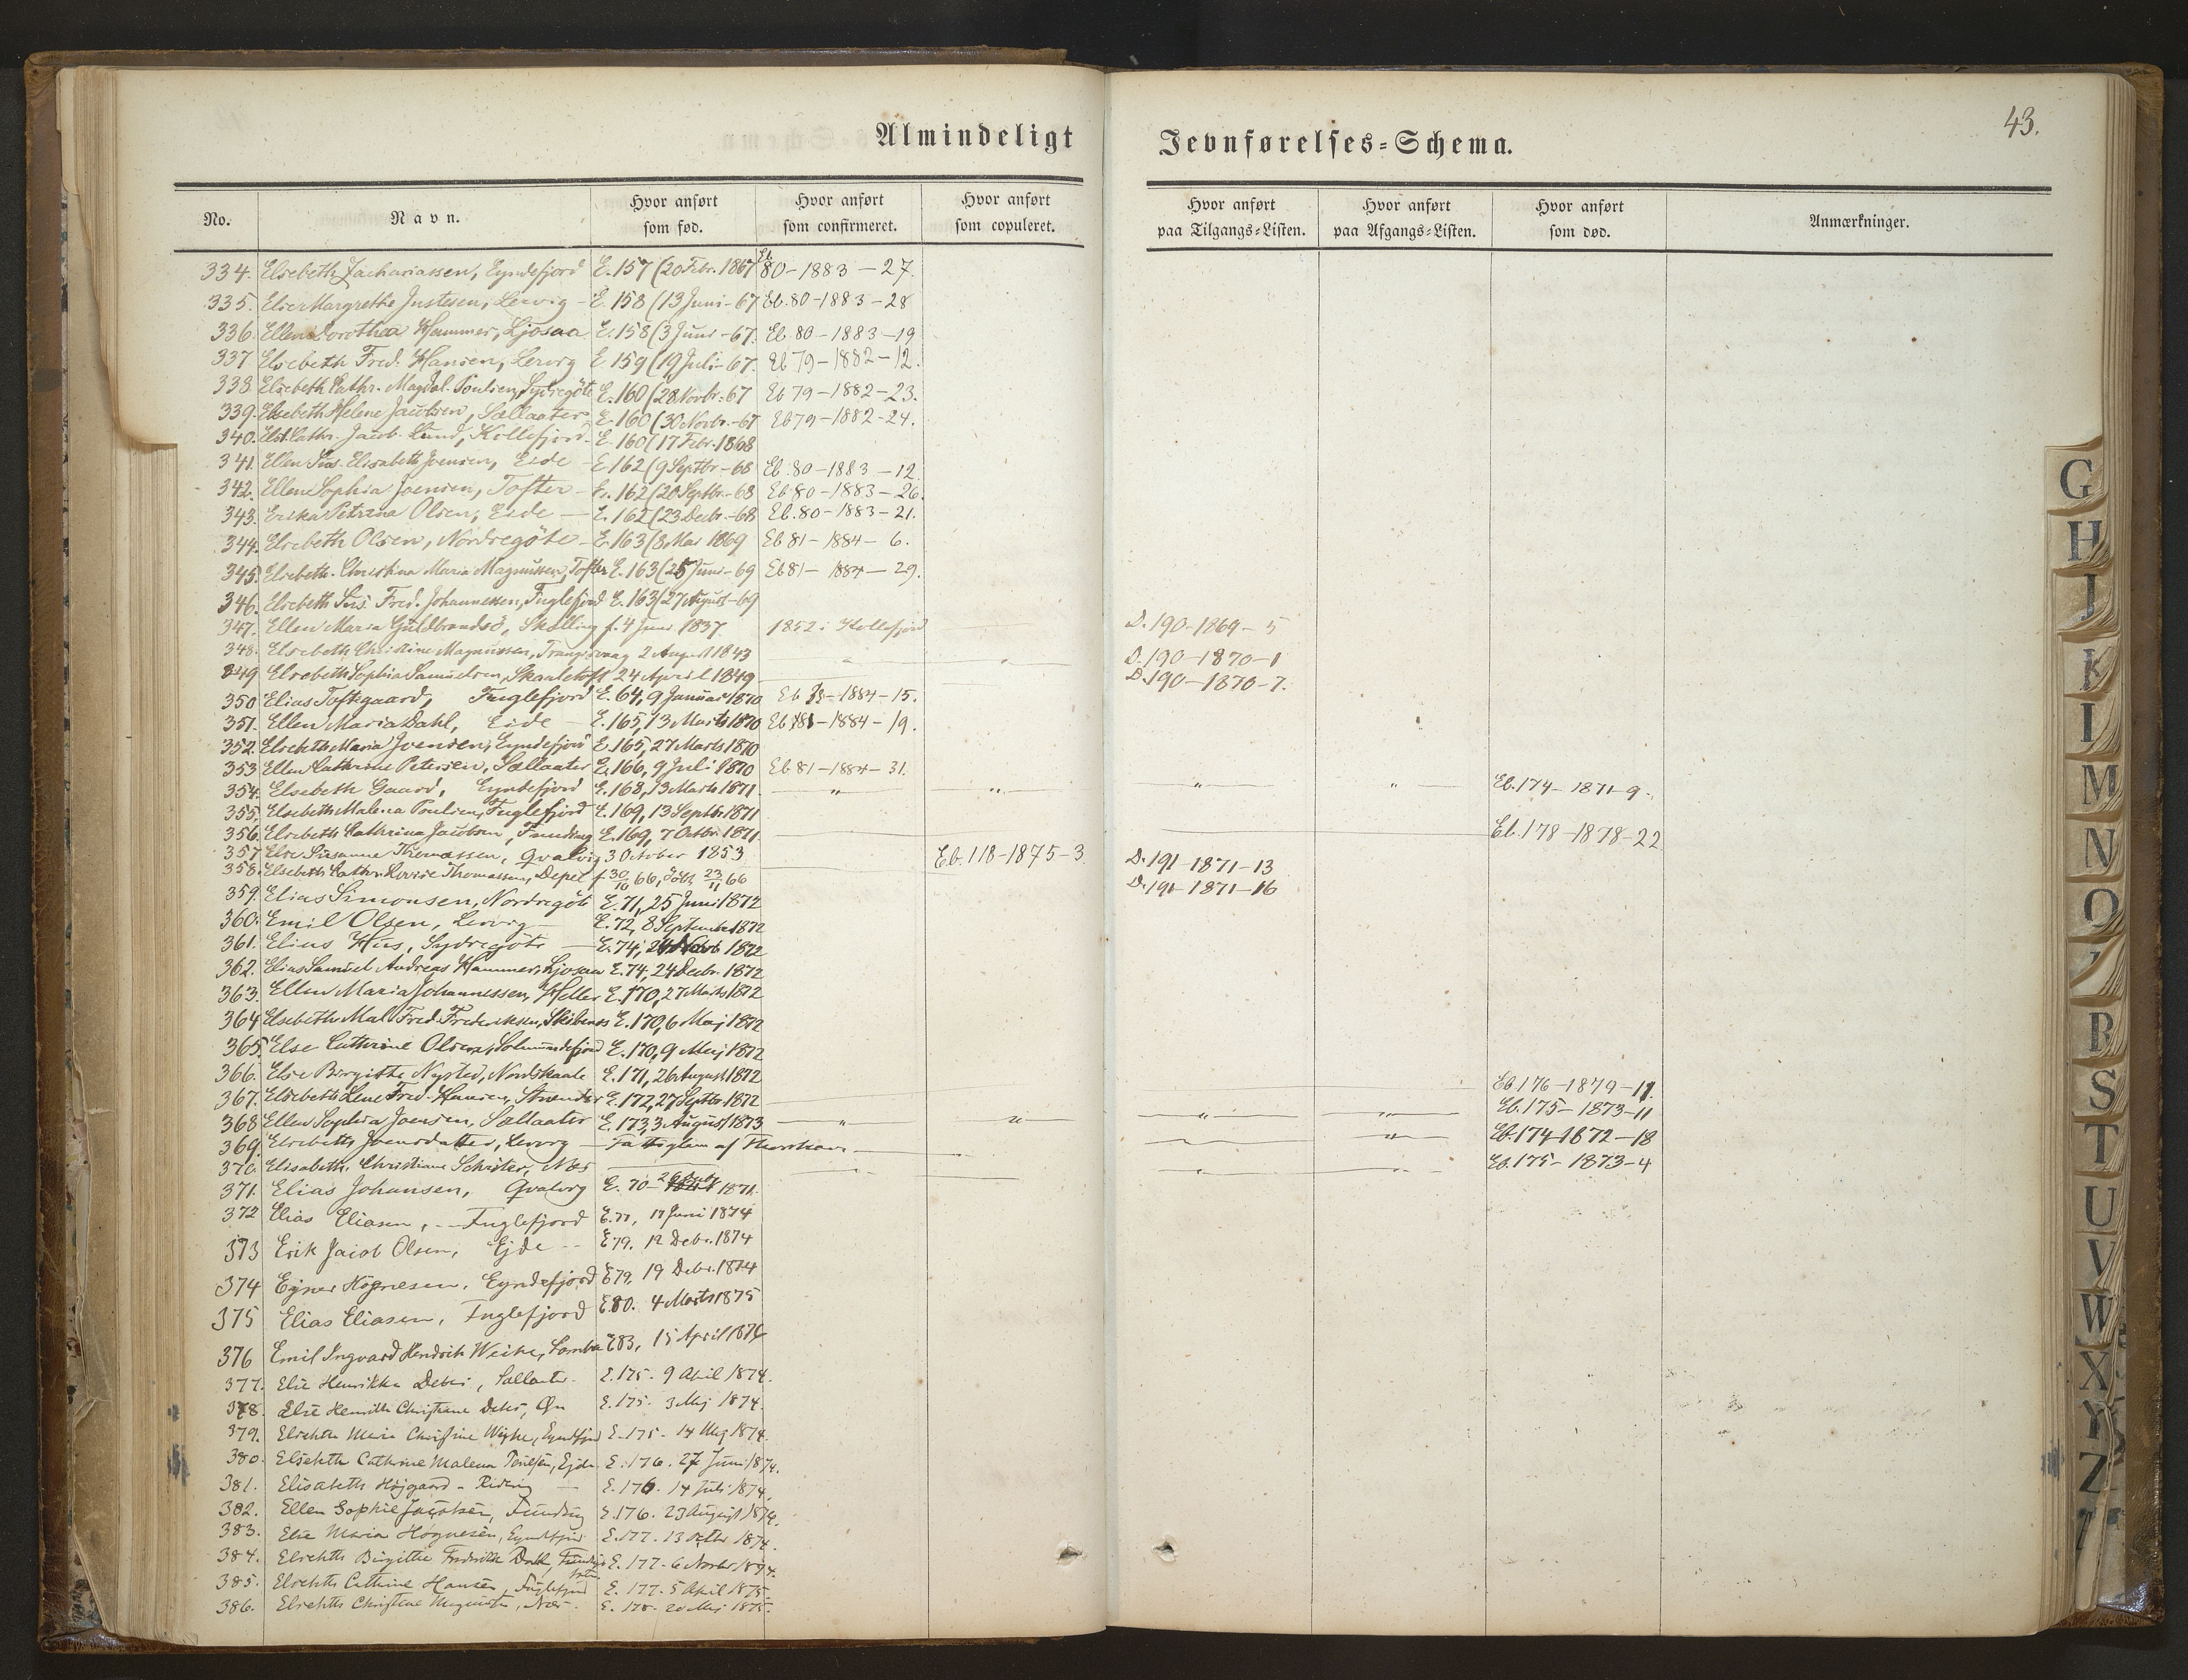 43.
Almindeligt Jevnførelses=Schema.
No. Navn. Hvor anført som fød. Hvor anført som confirmeret. Hvor anført som copuleret. Hvor anført paa Tilgangs=Listen. Hvor anført paa Afgangs=Listen. Hvor anført som død. Anmærkninger.
334. Elsebeth Zachariassen, Eyndefjord E. 157 (20 Febr. 1867 Eb 80-1883-27.
335. Else Margrethe Justesen, Lervig E. 158 (13 Juni-67 Eb. 80-1883-28
336. Ellen Dorothea Hammer, Ljosaa E. 158 (3 Juni-67. Eb 80-1883-19
337 Elsebeth Fred. Hansen, Lervig E 159 (19 Juli-67. Eb 79-1882-12.
338 Elsebeth Cathr. Magdal. Poulsen, Sydregöte E. 160 (28 Novbr.-67 Eb 79-1882-23.
339. Elsebeth Helene Jacobsen, Sellaater E. 160 (30 Novbr.-67 Eb 79-1882-24.
340. Elsb. Cathr. Jacob. Lund, Kollefjord E. 160 (17 Febr. 1868
341. Ellen Sus. Elisabeth Joensen, Eide E 162 (9 Septbr-68 Eb. 80-1883-12
342. Ellen Sophia Joensen, Tofter E. 162 (20 Septbr.-68 Eb 80-1883-26.
343. Erika Petrina Olsen, Eide E. 162 (23 Decbr.-68 Eb. 80-1883-21.
344. Elsebeth Olsen, Nordregöte E. 163 (8 Mai 1869 Eb 81-1884-6.
345. Elsebeth Christina Maria Magnussen, Tofter E. 163 (25 Juni-69 Eb 81-1884-29.
346. Elsebeth Sus. Fred. Johannessen, Fuglefjord E. 163 (27 August-69
347. Ellen Maria Guldbrandsd, Skelling f. 4 Juni 1837. 1852 i Kollefjord D. 190-1869-5
348. Elsebeth Christine Magnussen, Trangisvaag 2 August 1843 D. 190-1870-1
349 Elsebeth Sophia Samuelsen, Skaaletoft 24 April 1849 D. 190-1870-7.
350 Elias Toftegaard, Fuglefjord E. 64, 9 Januar 1870 Eb -1884-15.
351. Ellen Maria Dahl, Eide E. 165, 13 Marts 1870 Eb 81-1884-19.
352. Elsebeth Maria Joensen, Eyndefjord E. 165, 27 Marts 1870
353 Ellen Cathrine Petersen, Sellaater E. 166, 9 Juli 1870 Eb 81-1884-31.
354. Elsebeth Gaard, Eyndefjord E. 168, 13 Marts 1871 " " " " Eb. 174-1871-9.
355. Elsebeth Malena Poulsen, Fuglefjord E. 169, 13 Septbr. 1871
356. Elsebeth Cathrina Jacobsen, Funding E. 169, 7 Octbr. 1871. Eb. 178-1878-22
357 Else Susanne Thomassen, Qvalvig 3 October 1853 Eb. 118-1875-3. D. 191-1871-13
358. Elsebeth Cathr. Lovise Thomassen, Depel f. 30/10 66, döbt 23/11 66 D. 191-1871-16
359. Elias Simonsen, Nordregöte E. 71, 25 Juni 1872
360. Emil Olsen, Lervig E. 72, 8 September 1872
361. Elias Hus, Sydregöte E. 74, 24 1872
362. Elias Samuel Andreas Hammer, Ljosaa E. 74, 24 Decbr. 1872
363. Ellen Maria Johannessen, Heller E. 170, 27 Marts 1872
364 Elsebeth Mal. Fred. Frederiksen, Skibenæs E. 170, 6 Maj 1872
365. Else Cathrine Olsen, Solmundefjord E. 170, 9 Maj 1872
366. Else Birgitte Nysted, Nordskaale E. 171, 26 August 1872 Eb. 176-1879-11.
367. Elsebeth Lene Fred. Hansen, Strender E. 172, 27 Septbr. 1872 Eb. 175-1873-11
368 Ellen Sophia Joensen, Sellaater E. 173, 3 August 1873 " " " " Eb. 174-1872-18
369. Elsebeth Joensdatter, Lervig Fattiglem af Thorshavn " Eb. 175-1873-4
370. Elisabeth Christiane Schröter, Nes
371. Elias Johansen, Qvalvig E. 70- 1871.
372 Elias Eliasen, Fuglefjord E. 77, 17 Juni 1874
373 Erik Jacob Olsen, Ejde E 79. 12 Debr. 1874
374 Ejner Högnesen, Eyndefjord E 79, 19 Debr. 1874
375 Elias Eliasen, Fuglefjord E. 80. 4 Marts 1875
376 Emil Ingvard Hendrik Weihe, Lamba E 83, 15 April 1876
377. Else Henrikke Debes, Sellaater E. 175. 9 April 1874.
378. Else Henrikke Christiane Debes, E. 175. 3 Maj 1874.
379. Elsebeth Maria Christine Weihe, Eyndefjord E. 175. 14 Maj 1874.
380. Elsebeth Cathrine Malena Poulsen, Ejde E. 176. 27 Juni 1874.
381. Elisabeth Højgaard - Ridevig E. 176. 14 Juli 1874.
382. Ellen Sophie Jacobsen, Funding E. 176. 23 August 1874.
383. Else Maria Høgnesen, Eyndefjord E. 177. 13 Octbr 1874.
384. Elsebeth Birgitte Frederikke Dahl, E. 177. 6 Novbr 1874.
385. Elsebeth Cathrine Hansen, Fuglefjord E. 177. 5 April 1875.
386. Elsebeth Christine Magnussen, Nes. E. 178. 20 Maj 1875.
G
H
J
K
L
M
N
O
R
S
T
U
V
W
X
Y
Z